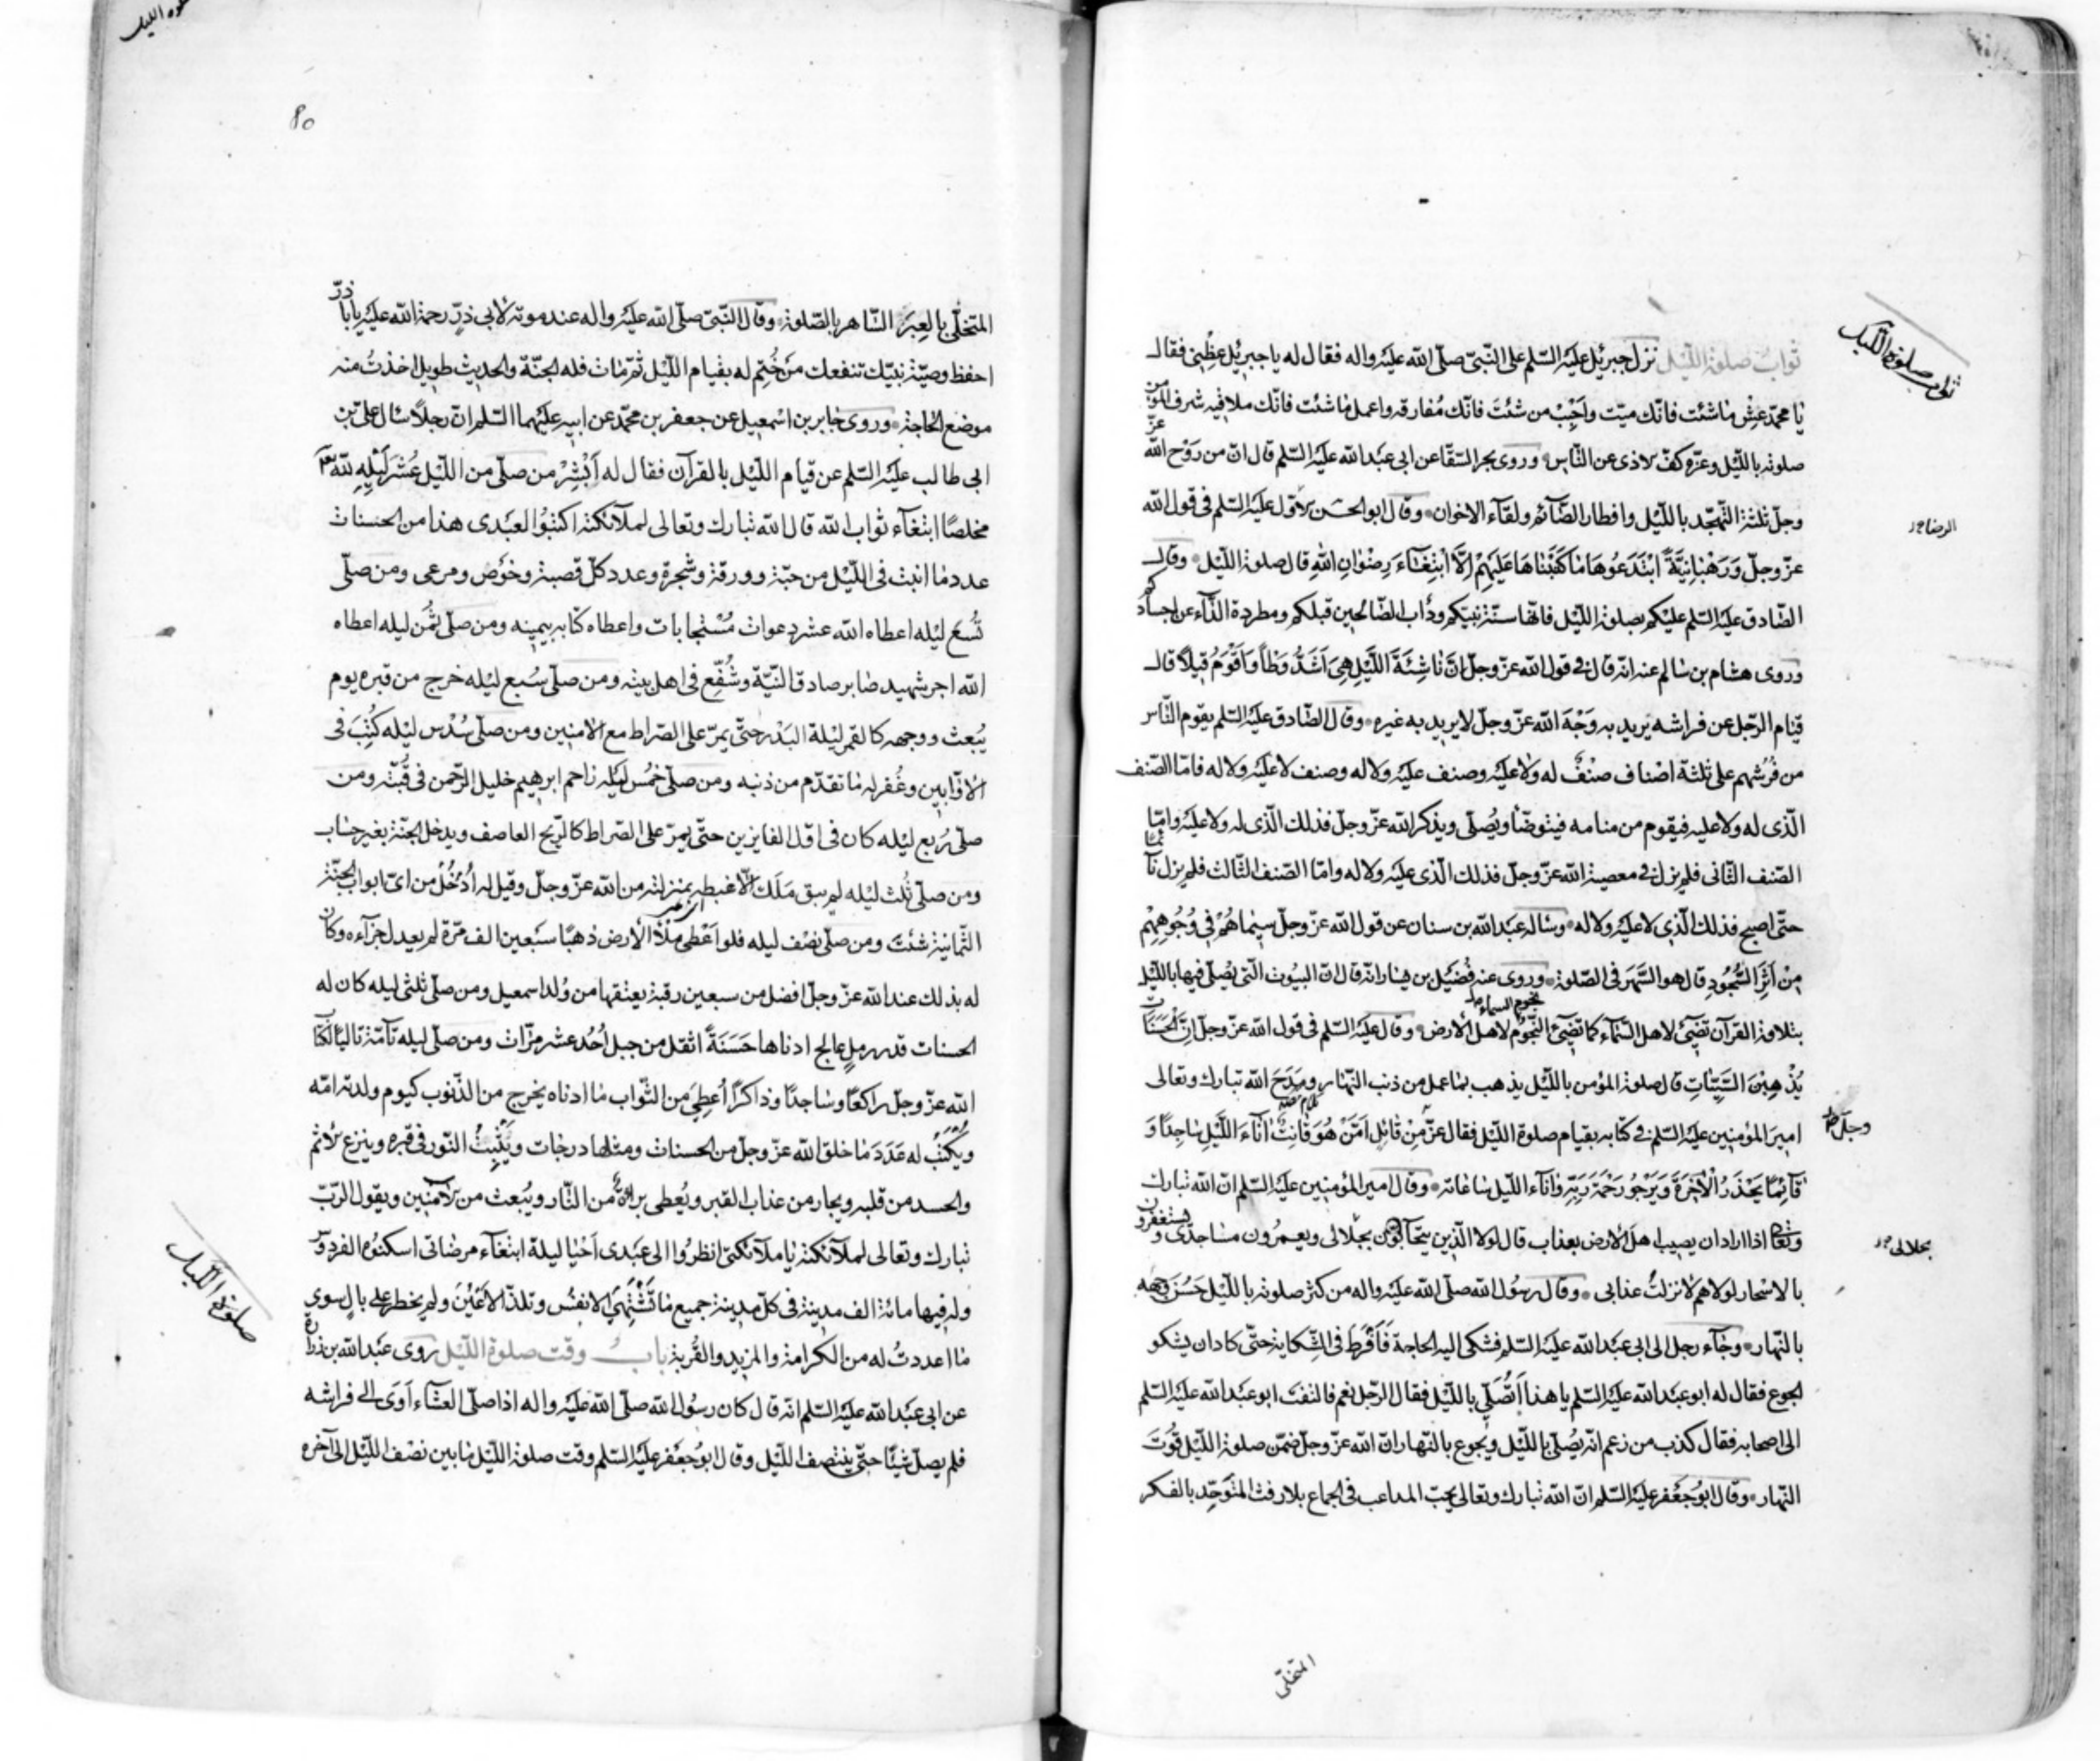 ثواب صلوة الليل
ثواب صلوة اللّيل نزل جبرئيل عليه السّلم على النّبىّ صلّى الله عليه واله فقال له يا جبرئيل عِظْنِى فقال
يا محمّد عِشْ ما شئت فانّك ميّت واَحْبِبْ من شئتَ فانّك مُفارقه واعمل ما شئت فانّك ملاقيه شرف المؤمن
صلوته باللّيل وعزّه كفّ الاذى عن النّاس وروى بحر السقّا عن ابى عبد الله عليه السّلم قال انّ من رَوْح الله عزّ
وجلّ ثلثة التّهجّد باللّيل وافطار الصّائم ولقاء الاخوان وقال ابو الحسن الاوّل عليه السّلم فى قول الله
الرضا
عزّ وجلّ وَرَهْبَانِيَّةً ابْتَدَعُوهَا مَا كَتَبْنَاهَا عَلَيْهِمْ اِلَّا ابْتِغَاءَ رِضْوَانِ اللهِ قال صلوة اللّيل وقال
الصّادق عليه السّلم عليكم بصلوة اللّيل فانّها سنّة نبيّكم ودأب الصّالحين قبلكم ومطردة الدّاء عن اجسادكم
وروى هشام بن سالم عنه انّه قال فى قول الله عزّ وجلّ انَّ نَاشِئَةَ اللَّيْلِ هِىَ اَشَدُّ وَطْأً وَاَقْوَمُ قِيلًا قال
قيام الرّجل عن فراشه يريد به وَجْهَ الله عزّ وجلّ لا يريد به غيره وقال الصّادق عليه السّلم يقوم النّاس
من فُرُشهم على ثلثة اصناف صنْفٌ له ولا عليه وصنف عليه ولا له وصنف لا عليه ولا له فامّا الصّنف
الّذى له ولا عليه فيقوم من منامه فيتوضّأ ويُصلّى ويذكر الله عزّ وجلّ فذلك الّذى له ولا عليه وامّا
الصّنف الثّانى فلم يزل فى معصية الله عزّ وجلّ فذلك الّذى عليه ولا له وامّا الصّنف الثّالث فلم يزل نائما
حتّى اصبح فذلك الّذى لا عليه ولا له وساله عبد الله بن سنان عن قول الله عزّ وجلّ سِيمَاهُمْ فِى وُجُوهِهِمْ
مِنْ اَثَرِ السُّجُودِ قال هو السَّهَر فى الصّلوة وروى عنه فُضَيْل بن يسار انّه قال انّ البيوت الّتى يُصلّى فيها باللّيل
بتلاوة القرآن تضيئ لاهل السّماء كما تضيئ النّجوم لاهل الارض وقال عليه السّلم فى قول الله عزّ وجلّ اِنَّ الْحَسَنَاتِ
نجوم السماء
يُذْهِبْنَ السَّيِّئَاتِ قال صلوة المؤمن باللّيل يذهب بما عمل من ذنب النّهار ومَدَحَ الله تبارك وتعالى
امير المؤمنين عليه السّلم فى كتابه بقيام صلوة اللّيل فقال عزّ مِنْ قَائِل اَمَّنْ هُوَ قَانِتٌ آنَاءَ اللَّيْلِ سَاجِدًا وَ
وجلّ
قَائِمًا يَحْذَرُ الْآخِرَةَ وَيَرْجُو رَحْمَةَ رَبِّهِ واناء اللّيل ساعاته وقال امير المؤمنين عليه السّلم انّ الله تبارك
وتعالى اذا اراد ان يصيب اهل الارض بعذاب قال لولا الّذين يتحابّون بجلالى ويعمرُون مساجدى ويستغفرون
بحلالى
بالاسْحار لولاهم لانزلتُ عذابى وقال رسُول الله صلّى الله عليه واله من كثر صلوته باللّيل حَسُنَ وجهه
بالنّهار وجاء رجل الى ابى عبد الله عليه السّلم فشكى اليه الحاجة فَاَفْرَطَ فى الشّكاية حتّى كاد ان يشكو
الجوع فقال له ابو عبد الله عليه السّلم يا هذا اَتُصَلّى باللّيل فقال الرّجل نعم فالتفت ابو عبد الله عليه السّلم
الى اصحابه فقال كذب من زعم انّه يُصلّى باللّيل ويجوع بالنّهار انّ الله عزّ وجلّ ضمّن صلوة اللّيل قُوتَ
النّهار وقال ابو جعفر عليه السّلم انّ الله تبارك وتعالى يحبّ المداعب فى الجماع بلا رفث المتوحّد بالفكر
المتخلّى
80
المتخلّى بالعِبَر السّاهر بالصّلوة وقال النّبىّ صلّى الله عليه واله عند موته لابى ذرّ رحمة الله عليه يا ابا ذرّ
احفظ وصيّة نبيّك تنفعك من خُتِم له بقيام اللّيل ثمّ مات فله الجنّة والحديث طويل اخذتُ منه
موضع الحاجة وروى جابر بن اسْمعيل عن جعفر بن محمّد عن ابيه عليهما السّلم انّ رجلًا سال علىّ بن
ابى طالب عليه السّلم عن قيام اللّيل بالقرآن فقال له اَبْشِرْ من صلّى من اللّيل عُشْرَ لَيْلِهِ لله
مخلصًا ابتغاء ثواب الله قال الله تبارك وتعالى لملآئكته اكتبُوا لعَبْدى هذا من الحسنات
عدد ما انبت فى اللّيل من حبّة وورقة وشجرة وعدد كلّ قصبة وخُوص ومرعى ومن صلّى
تُسْعَ ليْله اعطاه الله عشر دعوات مُسْتجابات واعطاه كتابه بيمينه ومن صلّى ثُمْن ليله اعطاه
الله اجر شهيد صابر صادق النّيّة وشُفّع فى اهل بيته ومن صلّى سُبع ليْله خرج من قبره يوم
يُبعث ووجهه كالقمر ليْلة البَدْر حتّى يمرّ على الصّراط مع الامنين ومن صلّى سُدْس ليْله كُتِبَ فى
الاوّابين وغُفر له ما تقدّم من ذنبه ومن صلّى خُمْس لَيْله زاحم ابرهيم خليل الرّحمن فى قُبّته ومن
صلّى رُبع ليْله كان فى اوّل الفايزين حتّى يمرّ على الصّراط كالرّيح العاصف ويدخل الجنّة بغير حساب
ومن صلّى ثُلث ليْله لم يبق مَلَك الّا غبطه بمنزلته من الله عزّ وجلّ وقيل له اُدْخُلْ من اىّ ابواب الجنّة
الثّمانية شئتَ ومن صلّى نصْف ليله فلو اُعْطِى مِلْأ الارض ذهبًا سَبعين الف مرّة لم يعدل جزاءه وكان
له بذلك عند الله عزّ وجلّ افضل من سبعين رقبة يعتقها من وُلد اسمعيل ومن صلّى ثلثى ليله كان له
الحسنات قدر رملٍ عالج ادناها حَسَنَةً اثقل من جبل اُحُد عشر مرّات ومن صلّى ليله تآمّة تاليًا لكتاب
الله عزّ وجلّ راكعًا وساجدًا وذاكرًا اُعطِى من الثّواب ما ادناه يخرج من الذّنوب كيوم ولدته امّه
ويُكْتَبُ له عَدَدَ مَا خلق الله عزّ وجلّ من الحسنات ومثلها درجات ويَثْبُتُ النّور فى قبره وينزع الاثم
والحسد من قلبه ويجار من عذاب القبر ويُعطى براءة من النّار ويُبعث من الآمنين ويقول الرّبّ
تبارك وتعالى لملآئكته يا ملآئكتى انظرُوا الى عَبْدى اَحْيا ليلة ابتغاء مرضاتى اسكنوُه الفردوس
صلوة الليل
وله فيها مائة الف مدينة فى كلّ مدينة جميع ما تشْتهى الانفُس وتلذّ الاَعْيُن ولم يخطر على بال سوى
ما اعددتُ له من الكرامة والمزيد والقُربة باب وقت صلوة اللّيل روى عبد الله بن زرارة
عن ابى عبد الله عليه السّلم انّه قال كان رسُول الله صلّى الله عليه واله اذا صلّى العشاء آوَى الى فراشه
فلم يصلّ شيئًا حتّى ينتصف اللّيل وقال ابُو جَعْفر عليه السّلم وقت صلوة اللّيل ما بين نصْف اللّيل الى آخره